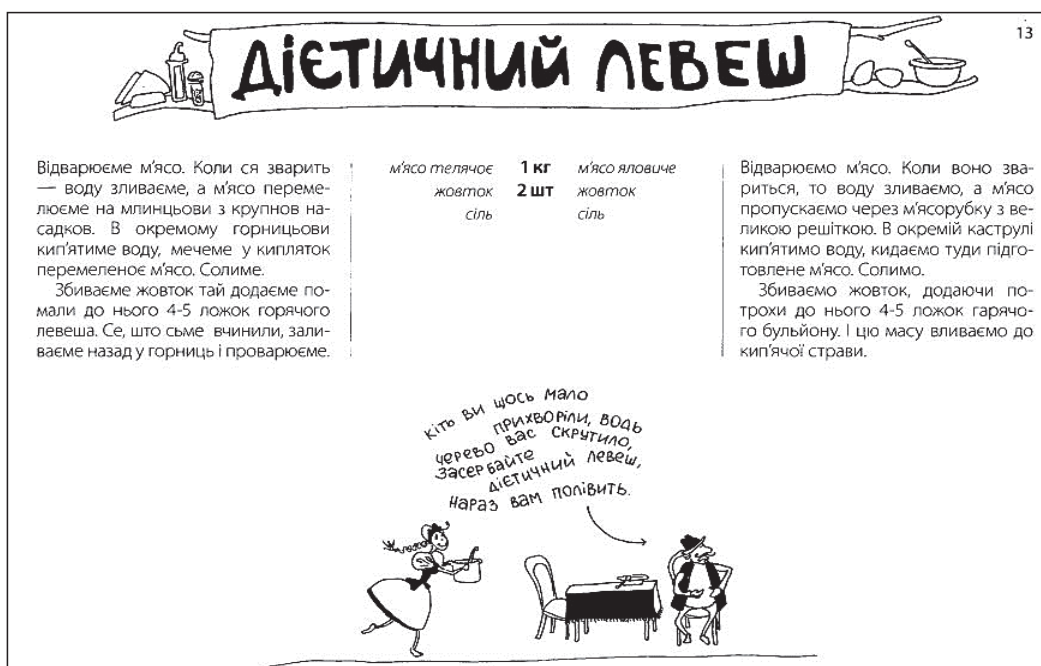 13
ДІЄТИЧНИЙ ЛЕВЕШ
Відварюєме м'ясо. Коли ся зварить
— воду зливаєме, а м'ясо переме-
люєме на млинцьови з крупнов на-
садков. В окремому горницьови
кип'ятиме воду, мечеме у кипляток
перемеленоє м'ясо. Солиме.
Збиваєме жовток тай додаєме по-
мали до нього 4-5 ложок горячого
левеша. Се, што сьме вчинили, зали-
ваєме назад у горниць і проварюєме.
м'ясо телячоє 1 кг м'ясо яловиче
жовток 2 шт жовток
сіль сіль
Відварюємо м'ясо. Коли воно зва-
риться, то воду зливаємо, а м'ясо
пропускаємо через м'ясорубку з ве-
ликою решіткою. В окремій каструлі
кип'ятимо воду, кидаємо туди підго-
товлене м'ясо. Солимо.
Збиваємо жовток, додаючи по-
трохи до нього 4-5 ложок гарячо-
го бульйону. І цю масу вливаємо до
кип'ячої страви.
КІТЬ ВИ ЩОСЬ МАЛО
ПРИХВОРІЛИ, ВОДЬ
ЧЕРЕВО ВАС СКРУТИЛО,
ЗАСЕРБАЙТЕ
ДІЄТИЧНИЙ ЛЕВЕШ,
НАРАЗ ВАМ ПОЛІВИТЬ.